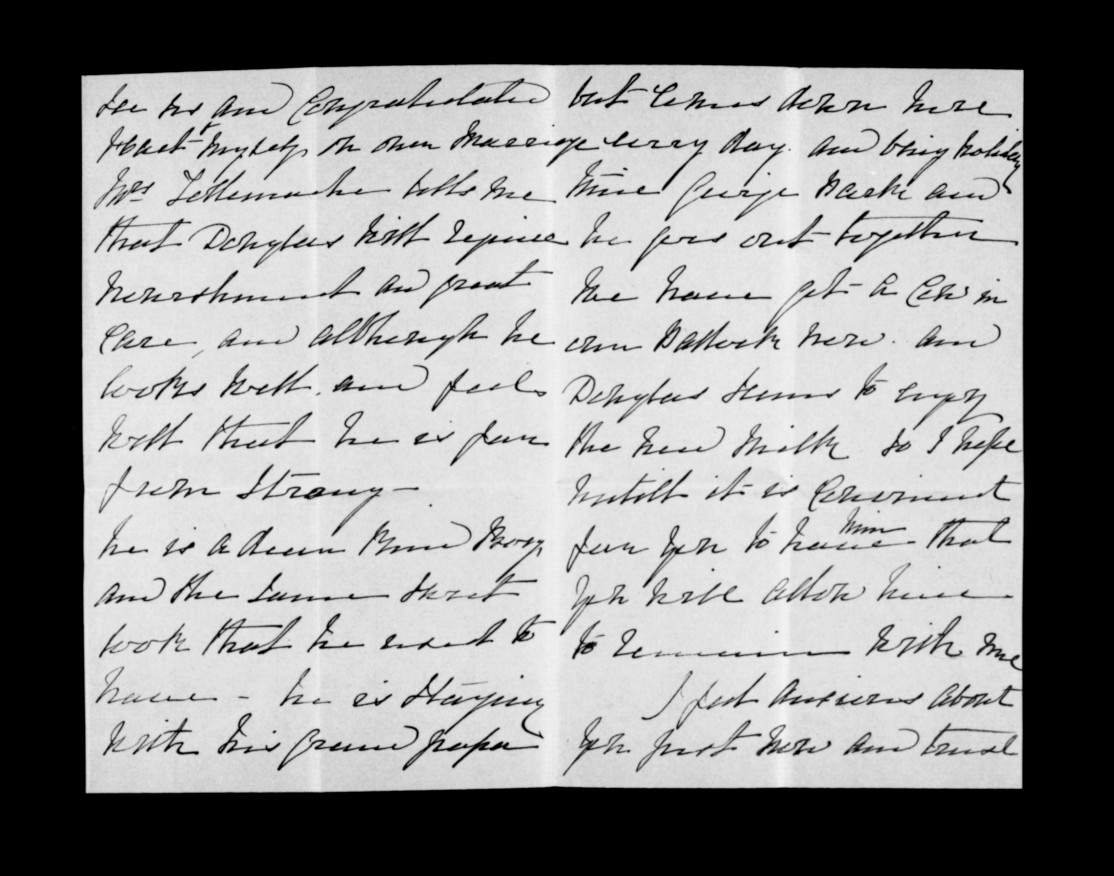 see us and Congratulated
& myself on our Marriage
Mrs Tollemache tells me
that Douglas will require
nourishment and great
Care, and although he
looks well. and feels
well that he is far
from Strong -
he is a dear kind Boy
and the same sweet
look that he used to
have - he is staying
with his Grand papa
but comes down here
every day. and being holiday
time George and
he goes out together
We have got a Cow in
our Paddock now. and
Douglas seems to enjoy
the new milk so I hope
untill it is Convenient
for you to have him that
you will allow him
to remain with me
I feel anxious about
you just now and trust